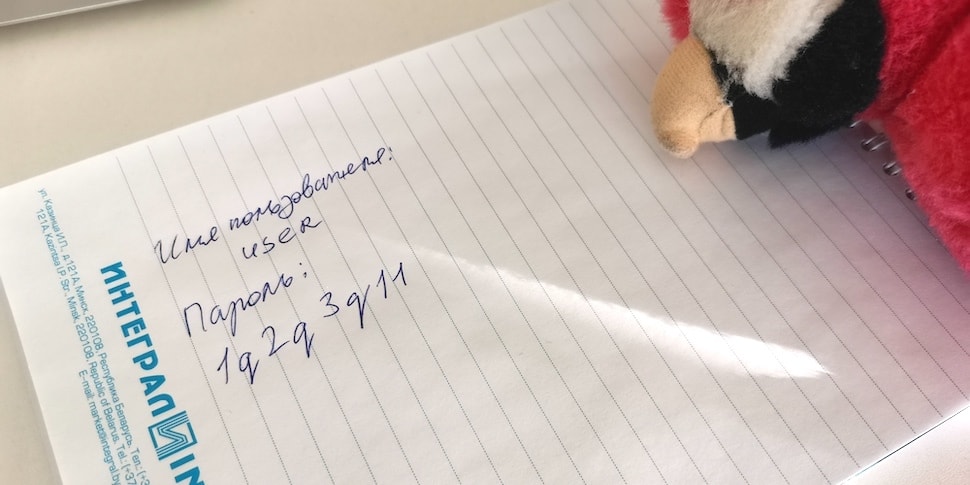 Имя пользователя:
user
Пароль:
1q2q3q11
ИНТЕГРАЛ IN
ул. Казинца И.П., д.121А, Минск, 220108, Республика Беларусь, Тел.: (+37
121A, Kazintsa I.P. Str., Minsk, 220108, Republic of Belarus, Tel.: (+37
E-mail: market@integral.by